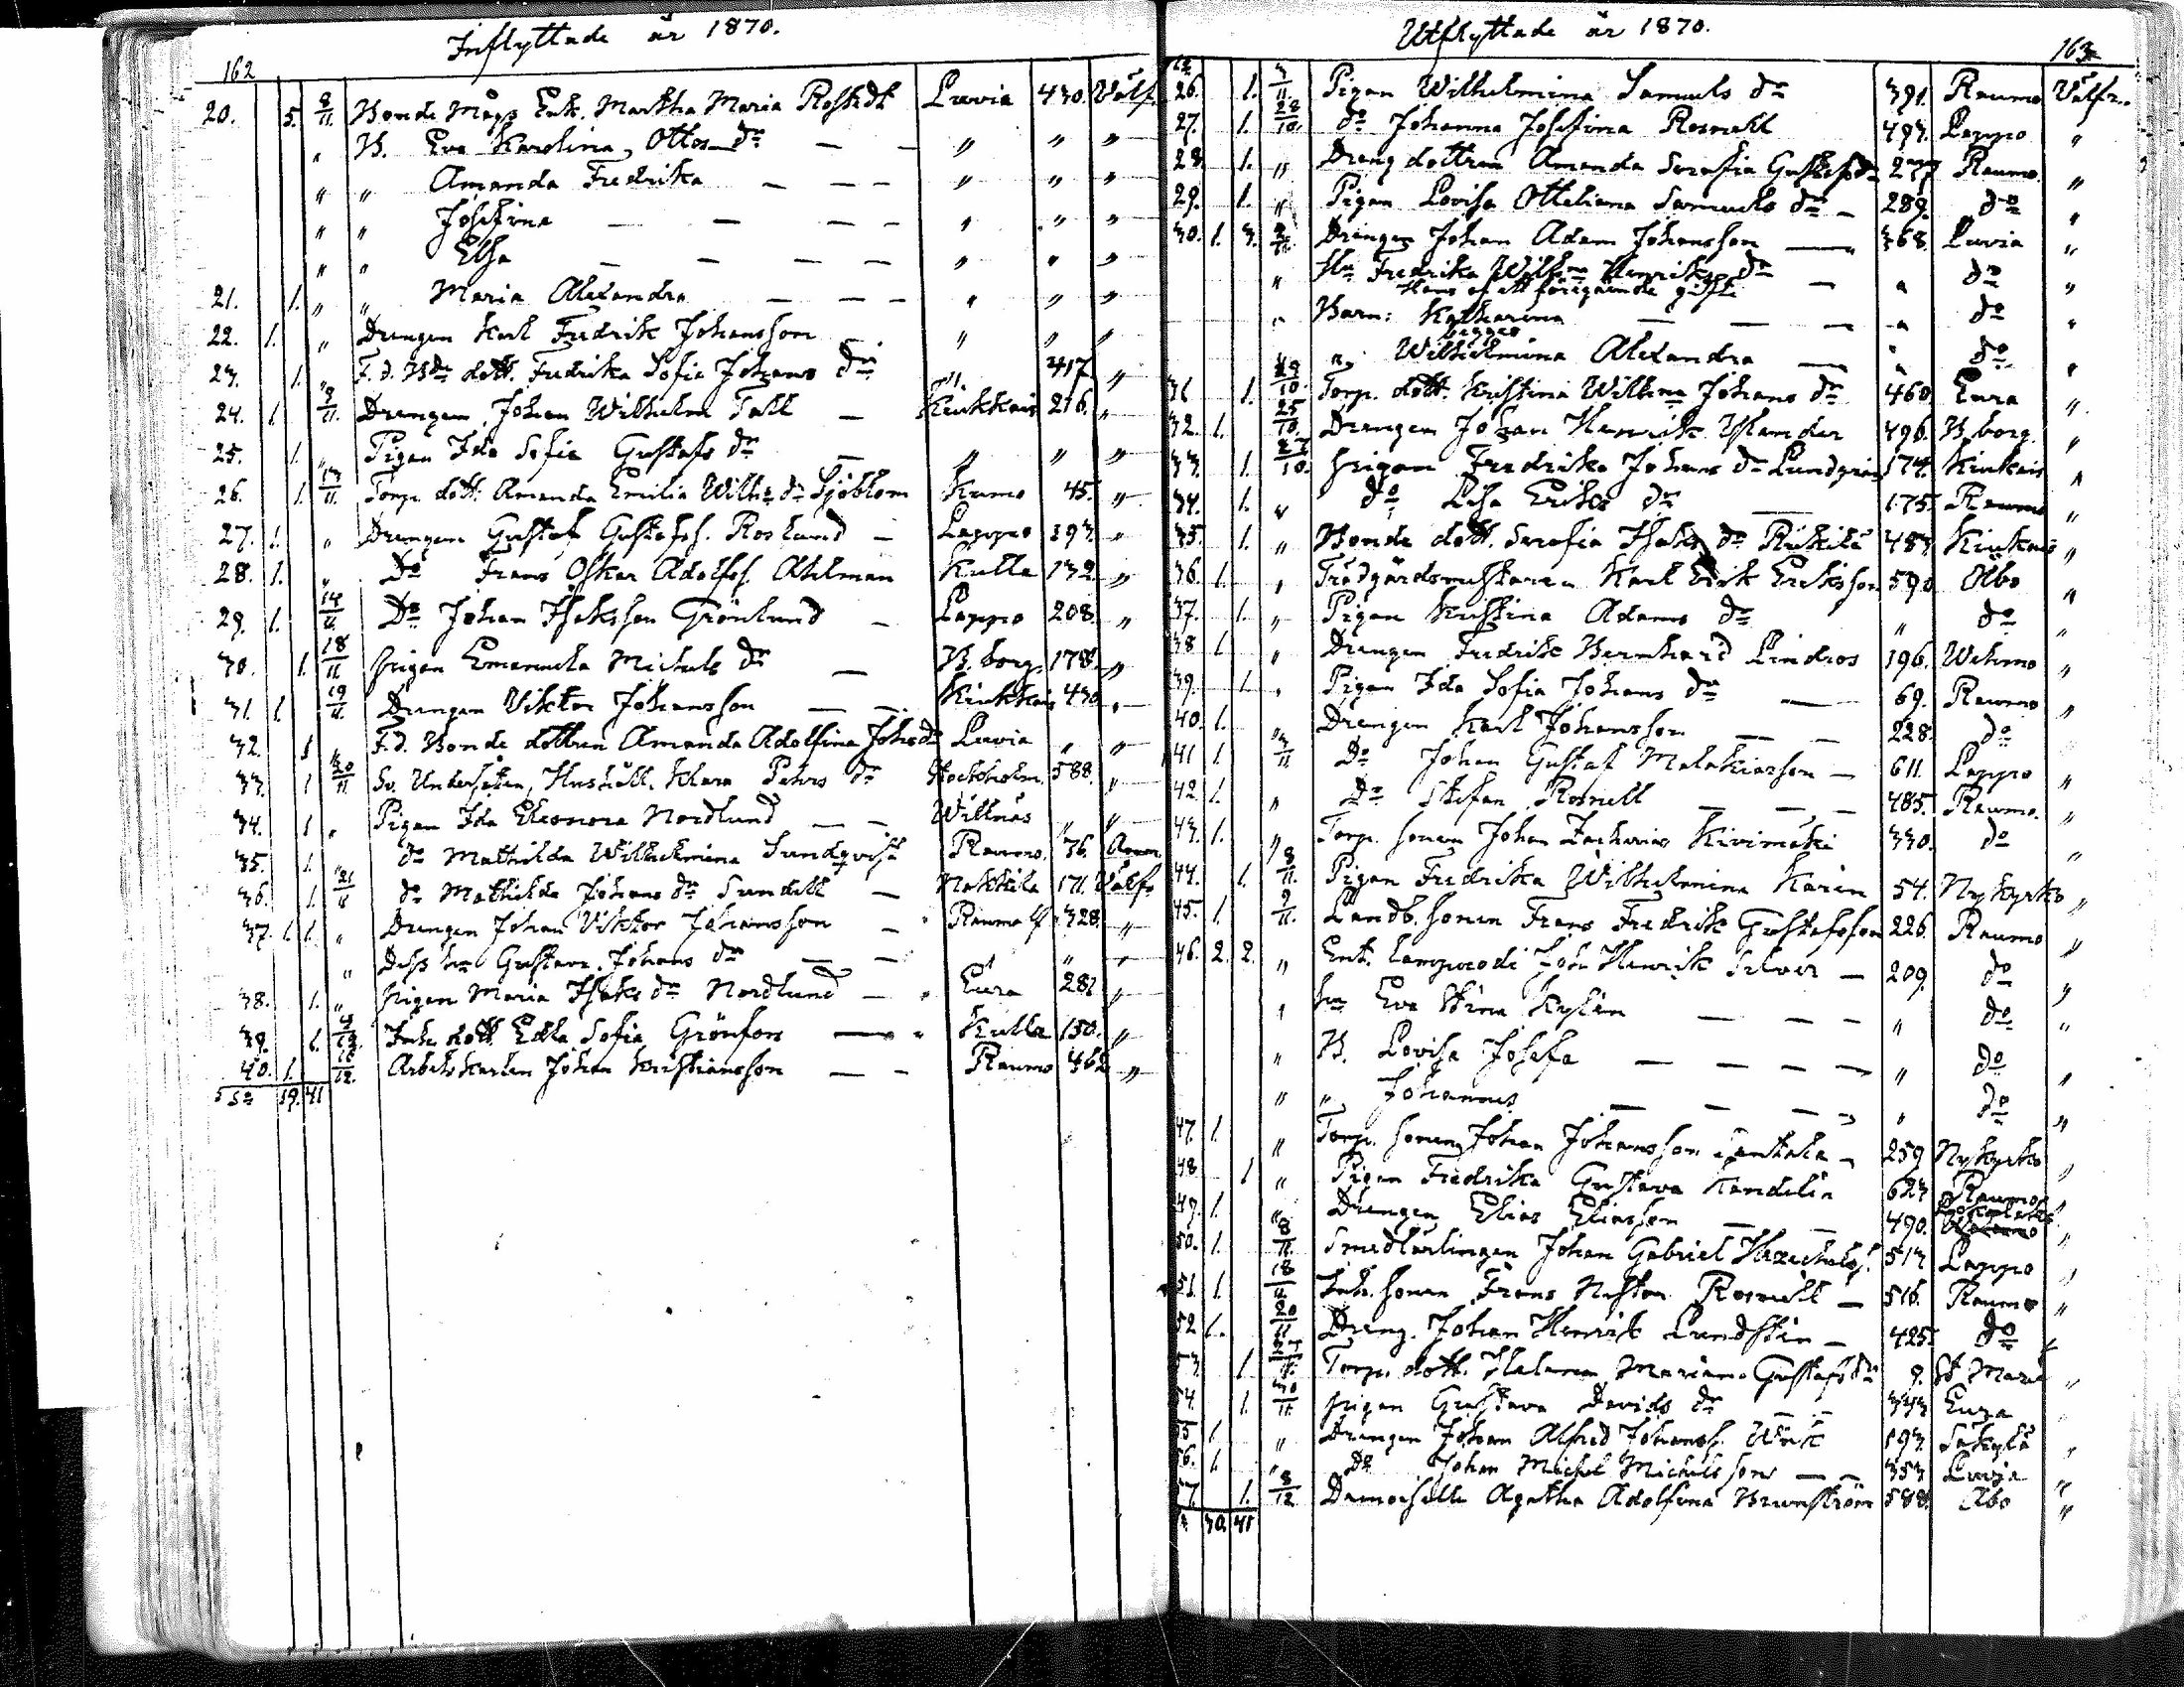 Inflyttade år 1870.
162
20. 5. 9/11. Bonde Mågs Enk. Martha Maria Rostedt Luvia 430. Välf.
" B. Eva Karolina, Ottos dr — — " " "
" " Amanda Fredrika — — — " " "
" " Josefina — — — — " " "
" " Elsa — — — — " " "
21. 1. " " Maria Alexandra — — — " " "
22. 1. " Drengen Karl Fredrik Johansson " " "
23. 1. " F. d. Bde dott. Fredrika Sofia Johans dr " 417 "
24. 1. 9/11. Drengen Johan Wilhelm Tall — Kiukkais 216. "
25. 1. " Pigan Ida Sofia Gustafs dr — " " "
26. 1. 13/11. Torp. dott. Amanda Emilia Wilh. dr Sjöblom Kumo 45. "
27. 1. " Drengen Gustaf Gustafss. Roslund — Lappo 393. "
28. 1. " Do Frans Oskar Adolfss. Ahlman Kulla 132 "
29. 1. 14/11. Do Johan Isaksson Grönlund — Lappo 208. "
30. 1. 18/11 Pigan Emanuela Michels dr — B. borg. 178. "
31. 1. 19/11. Drengen Viktor Johansson — — Kiukkais 430 "
32. 1 " F. d. Bonde dottren Amanda Adolfina Johs dr Luvia " "
33. 1 20/11 Sv. Undersåten, Hushåll. Klara Pehrs dr Stockholm. 588. "
34. 1 " Pigan Ida Eleonora Nordlund — — Willnäs " "
35. 1. " do Mathilda Wilhelmina Sundqvist Raumo. 36.
36. 1. 21/11 do Mathilda Johans dr Sundell — Nakkila 171. Välfr.
37. 1. 1. " Drengen Johan Viktor Johansson — Raumo 328. "
" Dess hu Gustava Johans dr — — " "
38. 1. " Pigan Maria Isaks dr Nordlund — " Eura 282 "
39. 1. Inh. dott. Edla Sofia Grönfors — " Kulla 150. "
40. 1. Arbetskarlen Johan Kristiansson — — Raumo 362 "
Sa 19. 41
Utflyttade år 1870.
163
26. 1. 3/11. Pigan Wilhelmina Samuels dr 391. Raumo Välfr.
27. 1. 28/10. do Johanna Josefina Rosnell 493. Lappo "
28. 1. " Dreng dottren Amanda Serafia Gustafs dr Raumo. "
29. 1. " Pigan Lovisa Otteliana Samuels dr — 289. do "
30. 1. 3. Drengen Johan Adam Johansson — 368. Luvia "
" Hu Fredrika Wilh:na Henriks dr — " do "
Hans af ett föregående gifte
" Barn: Katharina — — — " do "
" " Wilhelmina Alexandra — " do "
31 1. Torp. dott. Kristina Wilh:na Johans dr 460 Eura "
32. 1. 25/10. Drengen Johan Henrik 496. B. borg. "
33. 1. Pigan Fredrika Johans dr Lundgrén 174. Kiukais "
34. 1. " do Lisa Eriks dr — 175. Raumo "
35. 1. " Bonde dott. Serafia Isaks dr 483. Kiukais "
36. 1. " Trädgårdsmästaren Karl Erik Eriksson 590 Åbo "
37. 1. " Pigan Kristina Adams dr " do "
38 1 " Drengen Fredrik Bernhard Lindros 196. Wehmo "
39. 1. " Pigan Ida Sofia Johans dr — 69. Raumo "
40. 1. " Drengen Karl Johansson — — 228. do
41 1. 3/11 Do Johan Gustaf Malakiasson — 611. Lappo "
42. 1. " Do Stefan Rosnell — — — 485. Raumo. "
43. 1. " Torp. sonen Johan Zacharias Kivimäki 330. do "
44. 1. 8/11. Pigan Fredrika Wilhelmina Karin 54. Nykyrko "
45. 1. 9/11. Landb. sonen Frans Fredrik Gustafsson 226. Raumo "
46. 2. 2. " Joh. Henrik Silver — 209. do "
" Hu Eva Stina — — — " do "
" B. Lovisa Josefa — — — — " do "
" " Johannes — — — " do "
47. 1. " Torp. sonen Johan Johansson — 259 Nykyrko "
48 1 " Pigan Fredrika Gustava Kandelin 623 Raumo "
49. 1. " Drengen Elias Eliasson — — 490. "
50. 1. 8/11. Smedlärlingen Johan Gabriel 513 Lappo "
51. 1. 18/11 Inh. sonen Frans Nestor Rosnell — 516. Raumo "
52 1. 20/11 Dreng. Johan Henrik Lundstén — 425. do "
53. 1 Torp. dott. Helena Mariana Gustafs dr 9. St Marie "
54. 1. 30/11. Pigan Gustava Davids dr — — 333 Eura "
55 1 " Drengen Johan Alfred Johanss. Wirk 193. Säkylä "
56. 1. " Do Johan Michel Michelsson — — 353 Luvia "
57. 1. 8/12 Demoiselle Agatha Adolfina Brunström 588. Åbo "
30. 41